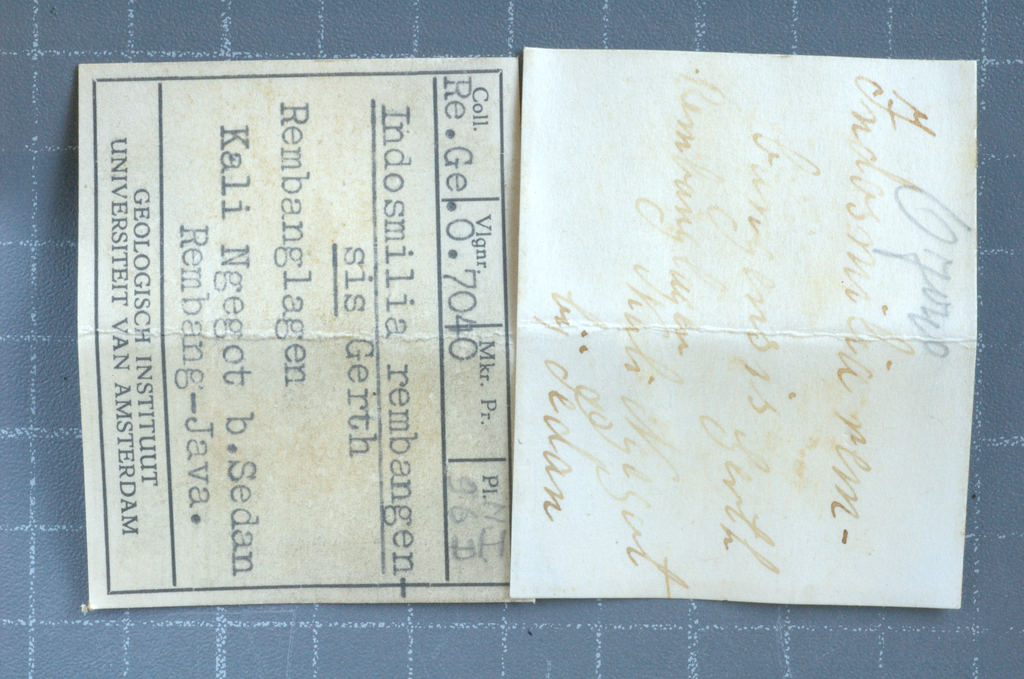 Coll. Vlgnr. Mkr. Pr. Pl. N I
Re.Ge.O.7040 96 D
Indosmilia rembangen-
sis Gerth
Rembanglagen
Kali Ngegot b.Sedan
Rembang-Java.
GEOLOGISCH INSTITUUT
UNIVERSITEIT VAN AMSTERDAM
O7040
Indosmilia rem-
bangensis Gerth
Rembanglagen
Kali Ngegot
bij Sedan